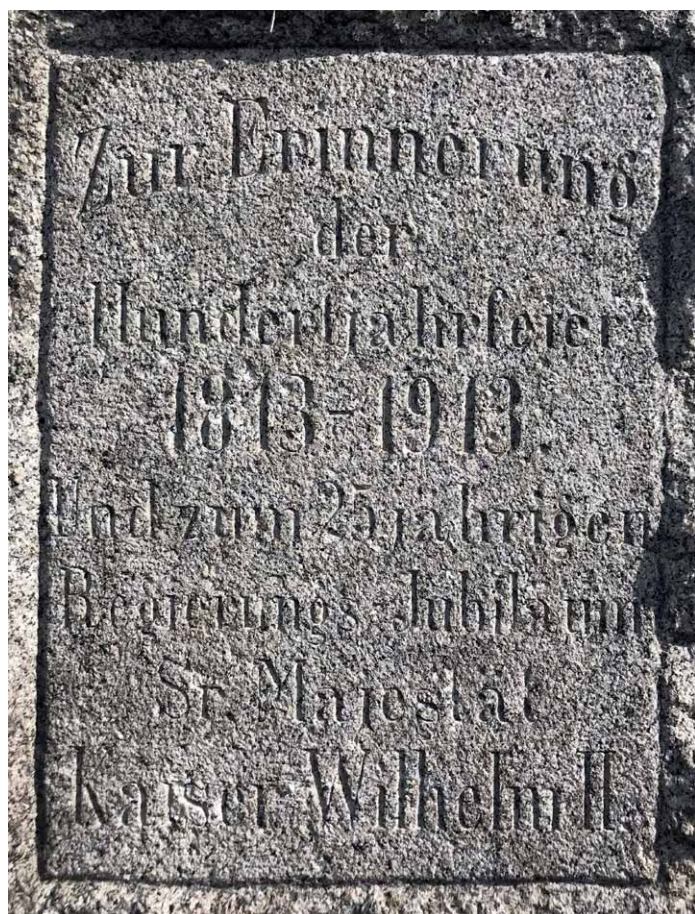 Zur Erinnerung
der
Hundertjahrfeier
1813-1913.
Und zum 25jährigen
Regierungs-Jubiläum
Sr. Majestät
Kaiser Wilhelm II.